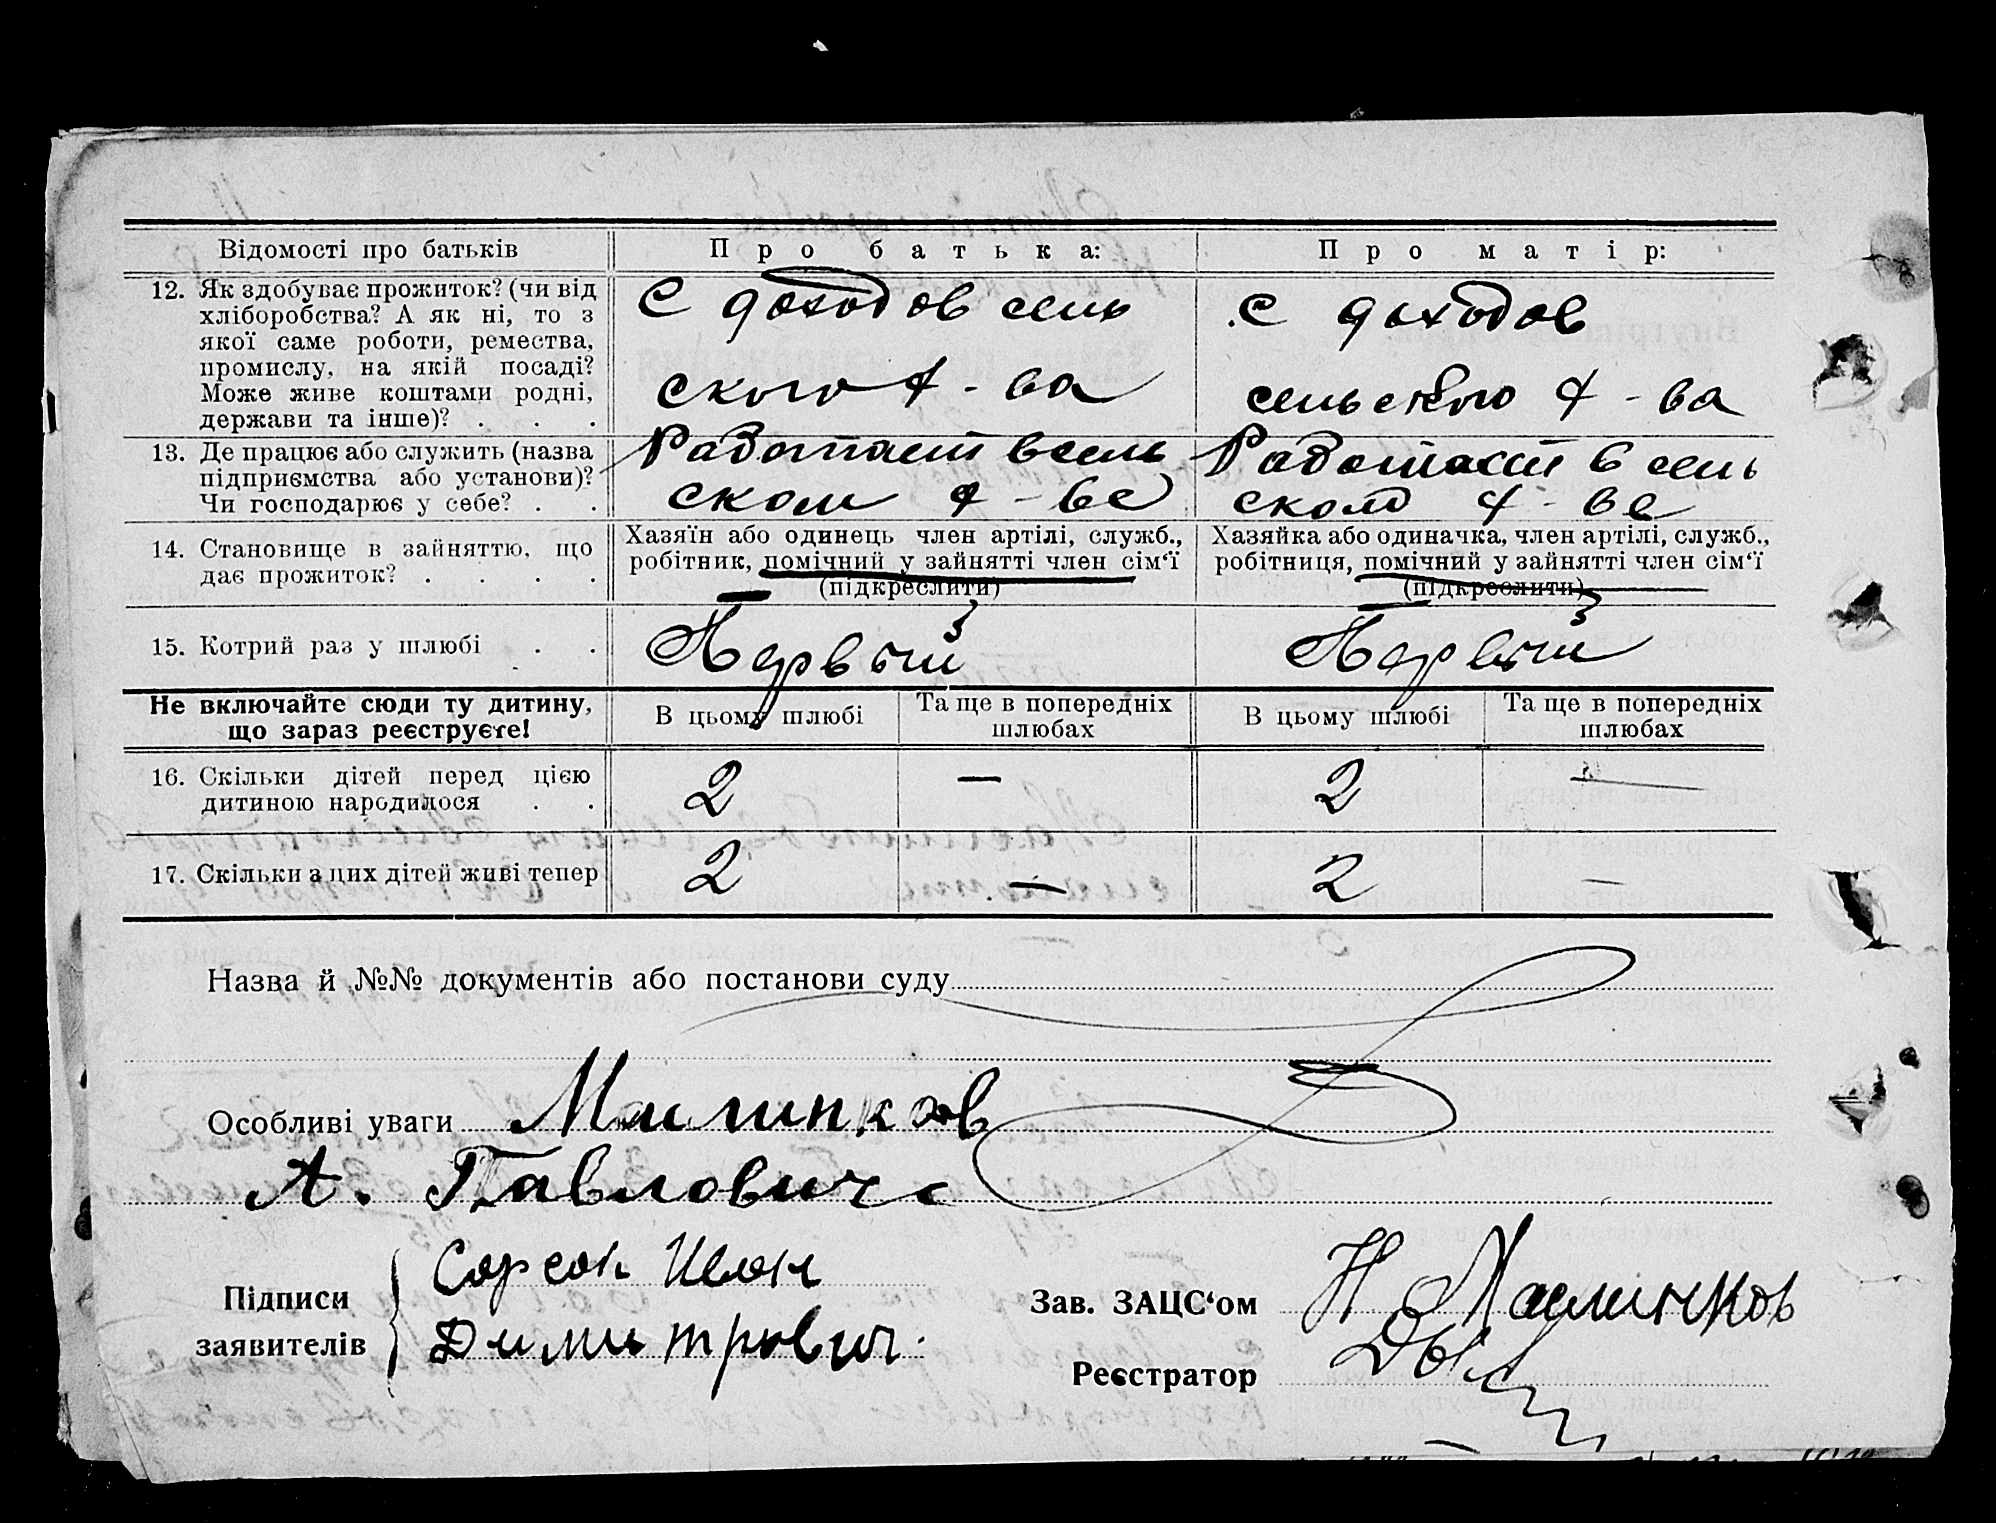 Відомості про батьків
Про батька:
Про матір:
12. Як здобуває прожиток? (чи від
хліборобства? А як ні, то з
якої саме роботи, ремества,
промислу, на якій посаді?
Може живе коштами родні,
держави та інше)? . . .
С доходов сель
ского х-ва
С доходов
сельского х-ва
13. Де працює або служить (назва
підприємства або установи)?
Чи господарює у себе? . .
Работает в сель
ском х-ве
Работает в сель
ском х-ве
14. Становище в зайняттю, що
дає прожиток? . . . .
Хазяїн або одинець член артілі, служб.,
робітник, помічний у зайнятті член сім‘ї
(підкреслити)
Хазяйка або одиначка, член артілі, служб.,
робітниця, помічний у зайнятті член сім‘ї
(підкреслити)
15. Котрий раз у шлюбі . .
Первый
Первый
Не включайте сюди ту дитину,
що зараз реєструєте!
В цьому шлюбі
Та ще в попередніх
шлюбах
В цьому шлюбі
Та ще в попередніх
шлюбах
16. Скільки дітей перед цією
дитиною народилося . .
2
—
2
—
17. Скільки з цих дітей живі тепер
2
—
2
—
Назва й №№ документів або постанови суду
Особливі уваги Малинков
А. Павлович
Підписи
заявителів
Димитрович.
Зав. ЗАЦС‘ом Н Малинков
Реєстратор